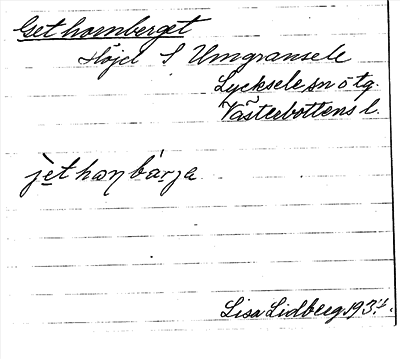 Gethornberget
Höjd S Umgransele
Lycksele sn o tg.
Västerbottens l.
Lisa Lidberg 1934.